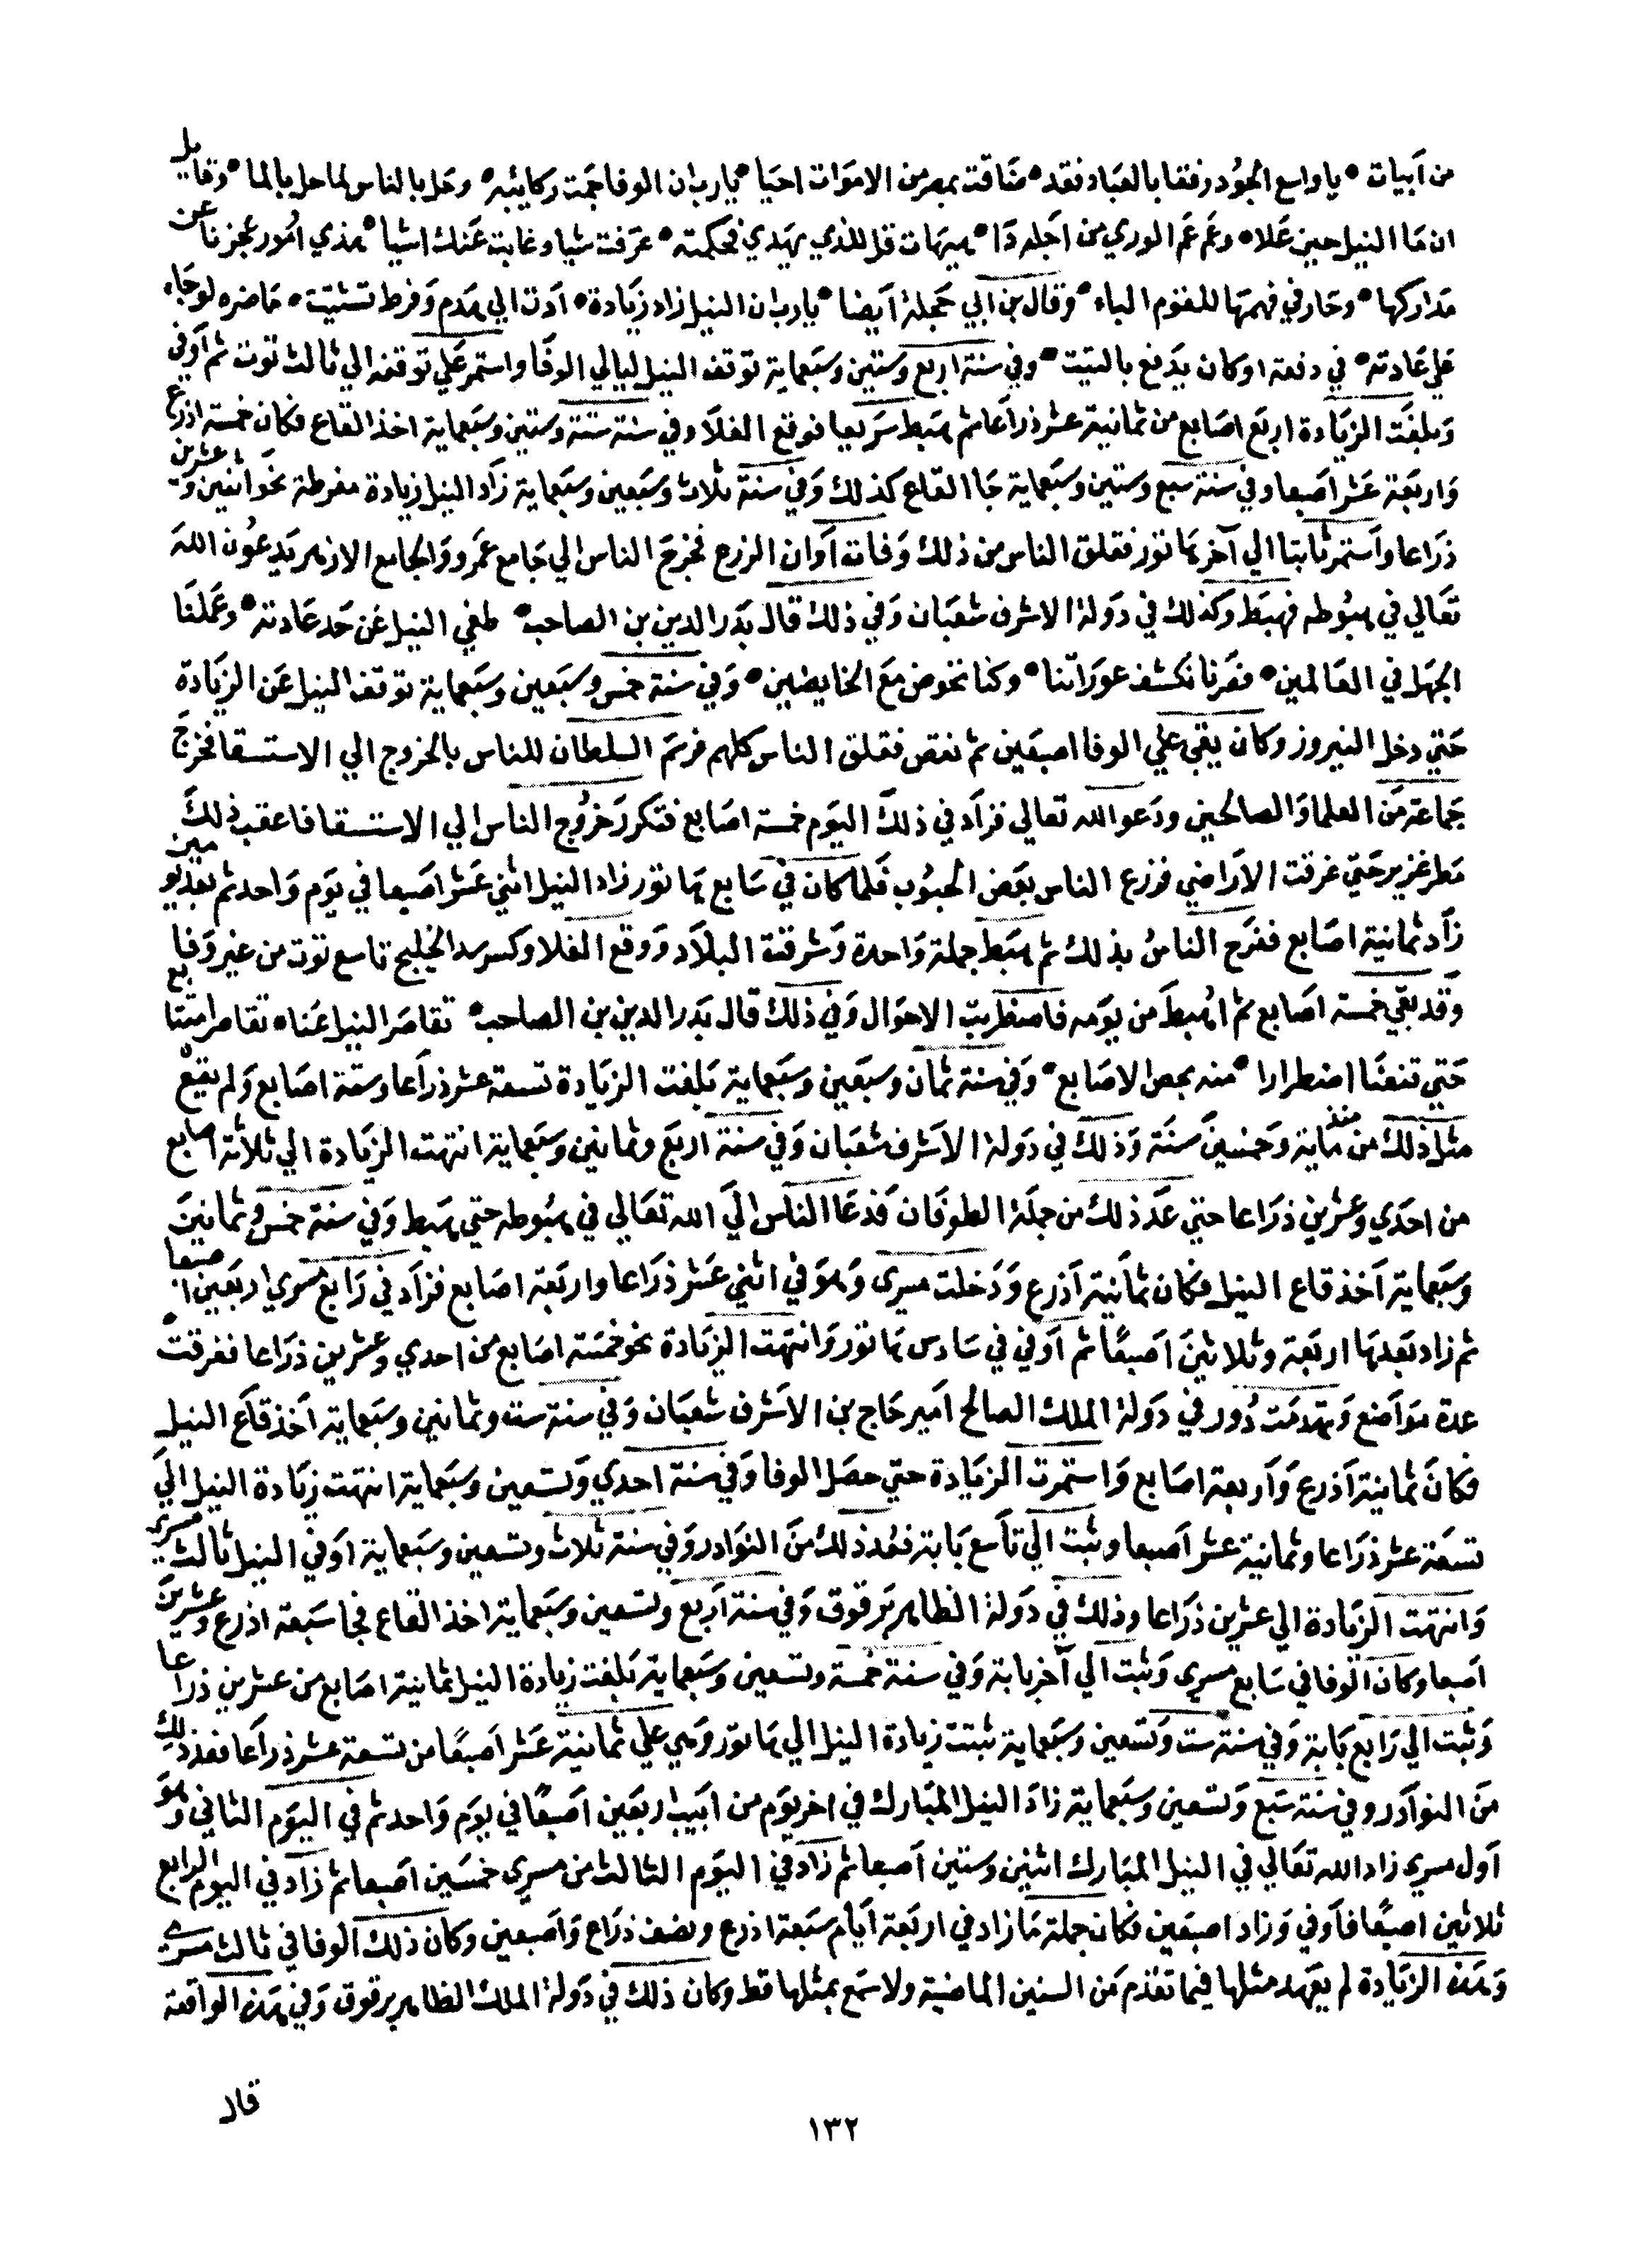 من ابيات • يا واسع الجود رفقا بالعباد فقد • ضاقت بمصر من الاموات احيا • يارب ان الوفا جمت ركايبه • وحل بالناس لما حل بالما • وقايل
ان ما النيل حين علاه وعم عم الوري من اجله دا • هيهات قل للذي يهدي فحكمته • عرفت شيا وغابت عنك اشيا • هذي امور عجزنا عن
مداركها • وحار في فهمها للقوم الباء • وقال بن ابي حجلة ايضا • يارب ان النيل زاد زيادة • ادت الي هدم وفرط تشتيت • ماضره لو جاء
علي عادته • في دفعه او كان يدفع بالتيت • وفي سنة اربع وستين وسبعماية توقف النيل ليالي الوفا واستمر علي توقفه الي ثالث توت ثم اوفي
وبلغت الزيادة اربع اصابع من ثمانية عشر ذراعا ثم هبط سريعا فوقع الغلا وفي سنة ستة وستين وسبعماية اخذ القاع فكان خمسة اذرع
واربعة عشر اصبعا وفي سنة سبع وستين وسبعماية جا القاع كذلك وفي سنة ثلاث وسبعين وسبعماية زاد النيل زيادة مفرطة نحو اثنين وعشرين
ذراعا واستمر ثابتا الي آخر هاتور فقلق الناس من ذلك وفات آوان الزرع فخرج الناس الي جامع عمرو والجامع الازهر يدعون الله
تعالي في هبوطه فهبط وكذلك في دولة الاشرف شعبان وفي ذلك قال بدر الدين بن الصاحب • طغي النيل عن حد عادته • وعملنا
الجهل في العالمين • فقرنا نكشف عوراتنا • وكنا نخوض مع الخايضين • وفي سنة خمس وسبعين وسبعماية توقف النيل عن الزيادة
حتي دخل النيروز وكان بقي علي الوفا اصبعين ثم نقص فقلق الناس كلهم فرسم السلطان للناس بالخروج الي الاستسقا فخرج
جماعة من العلما والصالحين ودعوا الله تعالي فزاد في ذلك اليوم خمسة اصابع فتكرر خروج الناس الي الاستسقا فاعقب ذلك
مطر غزير حتي غرقت الاراضي فزرع الناس بعض الحبوب فلما كان في سابع هاتور زاد النيل اثني عشر اصبعا في يوم واحد ثم بعد يومين
زاد ثمانية اصابع ففرح الناس بذلك ثم هبط جملة واحدة وشرقت البلاد ووقع الغلا وكسر سد الخليج تاسع توت من غير وفا
وقد بقي خمسة اصابع ثم انهبط من يومه فاضطربت الاحوال وفي ذلك قال بدر الدين بن الصاحب • تقاصر النيل عناه تقاصرا متتابع
حتي قنعنا اضطرارا • منه ببعض الاصابع • وفي سنة ثمان وسبعين وسبعماية بلغت الزيادة تسعة عشر ذراعا وستة اصابع ولم يقع
مثل ذلك من منذ ماية وخمسين سنة وذلك في دولة الاشرف شعبان وفي سنة اربع وثمانين وسبعماية انتهت الزيادة الي ثلاثة اصابع
من احدي وعشرين ذراعا حتي عد ذلك من جملة الطوفان فدعا الناس الي الله تعالي في هبوطه حتي هبط وفي سنة خمس وثمانين
وسبعماية اخذ قاع النيل فكان ثمانية آذرع ودخلت مسري وهو في اثني عشر ذراعا واربعة اصابع فزاد في رابع مسري اربعين اصبعا
ثم زاد بعدها اربعة وثلاثين اصبعا ثم اوفي في سادس هاتور وانتهت الزيادة نحو خمسة اصابع من احدي وعشرين ذراعا فغرقت
عدة مواضع وتهدمت دور في دولة الملك الصالح امير حاج بن الاشرف شعبان وفي سنة ست وثمانين وسبعماية اخذ قاع النيل
فكان ثمانية آذرع واربعة اصابع واستمرت الزيادة حتي حصل الوفا وفي سنة احدي وتسعين وسبعماية انتهت زيادة النيل الي
تسعة عشر ذراعا وثمانية عشر اصبعا وثبت الي تاسع بابة فعد ذلك من النوادر وفي سنة ثلاث وتسعين وسبعماية اوفي النيل ثالث مسري
وانتهت الزيادة الي عشرين ذراعا وذلك في دولة الظاهر برقوق وفي سنة اربع وتسعين وسبعماية اخذ القاع فجا سبعة اذرع وعشرين
اصبعا وكان الوفا في سابع مسري وثبت الي آخر بابة وفي سنة خمسة وتسعين وسبعماية بلغت زيادة النيل ثمانية اصابع من عشرين ذراعا
وثبت الي رابع بابة وفي سنة ست وتسعين وسبعماية ثبتت زيادة النيل الي هاتور وهي علي ثمانية عشر اصبعا من تسعة عشر ذراعا فعد ذلك
من النوادر وفي سنة سبع وتسعين وسبعماية زاد النيل المبارك في اخر يوم من ابيب اربعين اصبعا في يوم واحد ثم في اليوم الثاني وهو
آول مسري زاد الله تعالي في النيل المبارك اثنين وستين اصبعا ثم زاد في اليوم الثالث من مسري خمسين اصبعا ثم زاد في اليوم الرابع
ثلاثين اصبعا فاوفي وزاد اصبعين فكان جملة ما زاد في اربعة ايام سبعة اذرع ونصف ذراع واصبعين وكان ذلك الوفا في ثالث مسري
وهذه الزيادة لم يعهد مثلها فيما تقدم من السنين الماضية ولا سمع بمثلها قط وكان ذلك في دولة الملك الظاهر برقوق وفي هذه الواقعة
قال
١٣٢